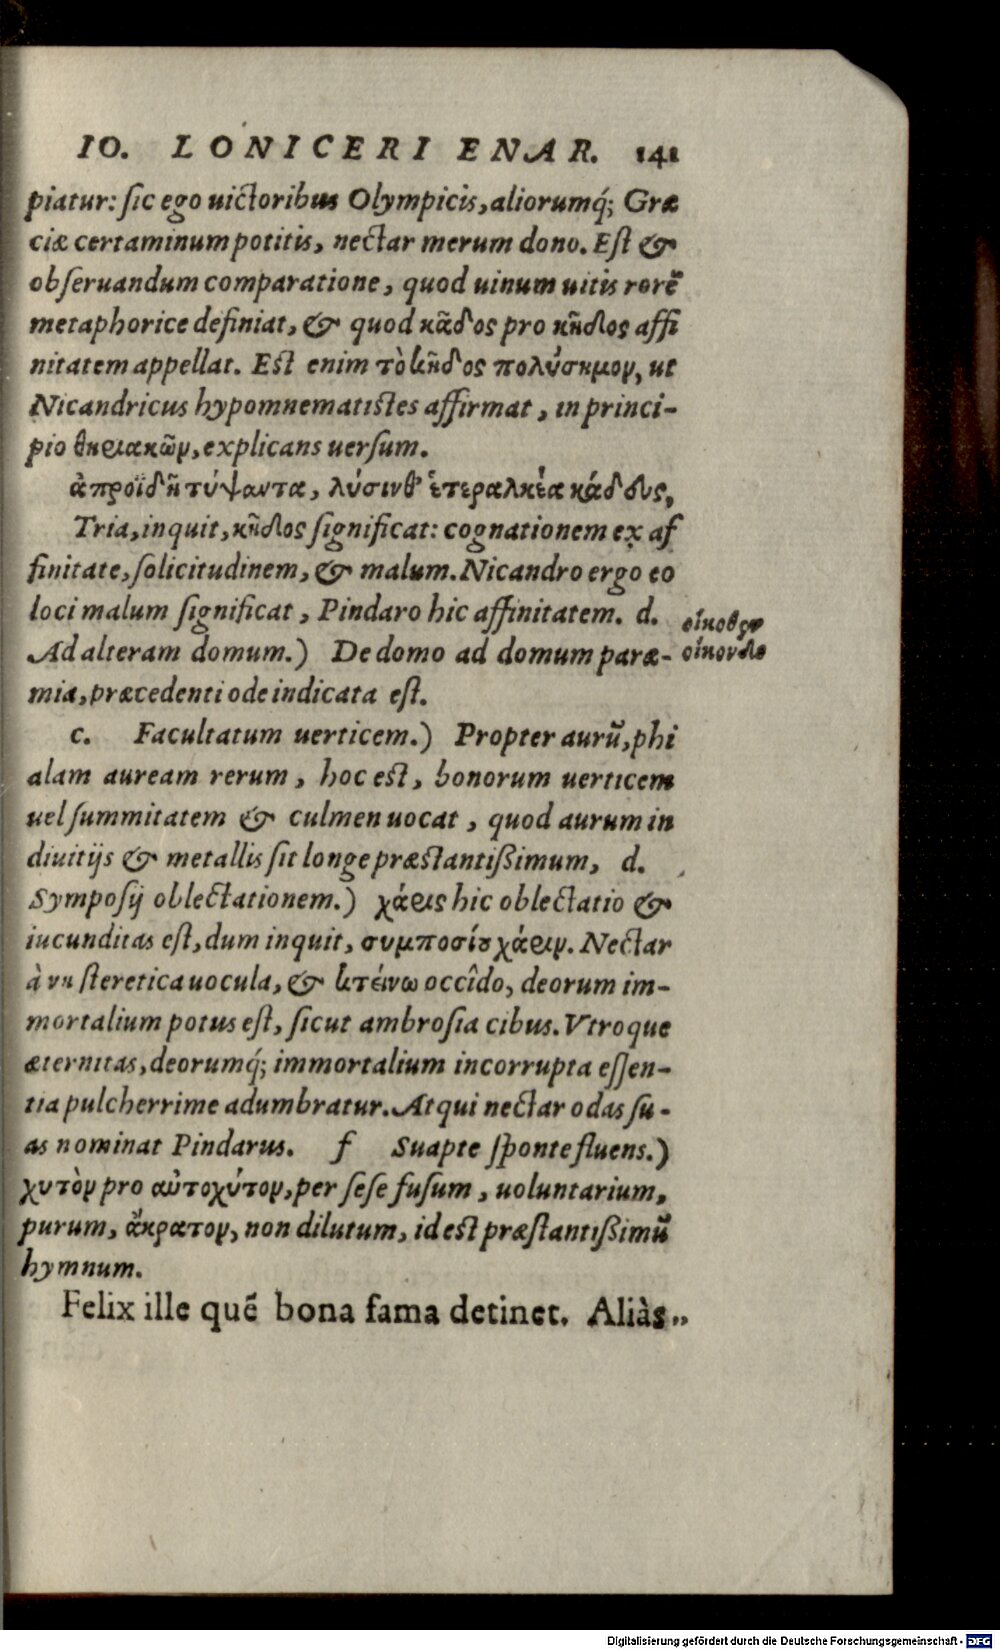 IO. LONICERI ENAR. 141
piatur: sic ego uictoribus Olympicis, aliorumq́; Græ
ciæ certaminum potitis, nectar merum dono. Est &
obseruandum comparatione, quod uinum uitis rorē
metaphorice definiat, & quod κᾶδος pro κῆδος affi
nitatem appellat. Est enim τὸ κῆδος πολύσημον, ut
Nicandricus hypomnematistes affirmat, in princi-
pio θηριακῶν, explicans uersum.
ἀπροϊδῆ τύψαντα, λύσινθ' ἑτεραλκέα κάδδυς,
Tria, inquit, κῆδος significat: cognationem ex af
finitate, solicitudinem, & malum. Nicandro ergo eo
loci malum significat, Pindaro hic affinitatem. d.
οἴκοθεν
Ad alteram domum.) De domo ad domum paræ-
οἴκονδε
mia, præcedenti ode indicata est.
c. Facultatum uerticem.) Propter aurū, phi
alam auream rerum, hoc est, bonorum uerticem
uel summitatem & culmen uocat, quod aurum in
diuitijs & metallis sit longe præstantißimum, d.
Symposij oblectationem.) χάρις hic oblectatio &
iucunditas est, dum inquit, συμποσίου χάριν. Nectar
à νη steretica uocula, & κτείνω occîdo, deorum im-
mortalium potus est, sicut ambrosia cibus. Vtroque
æternitas, deorumq́; immortalium incorrupta essen-
tia pulcherrime adumbratur. Atqui nectar odas su-
as nominat Pindarus. f Suapte sponte fluens.)
χυτὸν pro αὐτοχύτον, per sese fusum, uoluntarium,
purum, ἄκρατον, non dilutum, id est præstantißimū
hymnum.
Felix ille quē bona fama detinet. Aliàs„
Digitalisierung gefördert durch die Deutsche Forschungsgemeinschaft - DFG